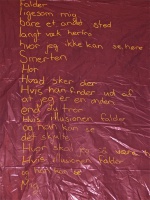 falder
ligesom mig
bare et andet sted
langt væk herfra
hvor jeg ikke kan se hende
Smerten
Hør
Hvad sker der
Hvis han finder ud af
at jeg er en anden
end du tror
Hvis illusionen falder
og han kan se
det skøre
Hvor skal jeg så være
Hvis illusionen falder
og han kan se
Mig